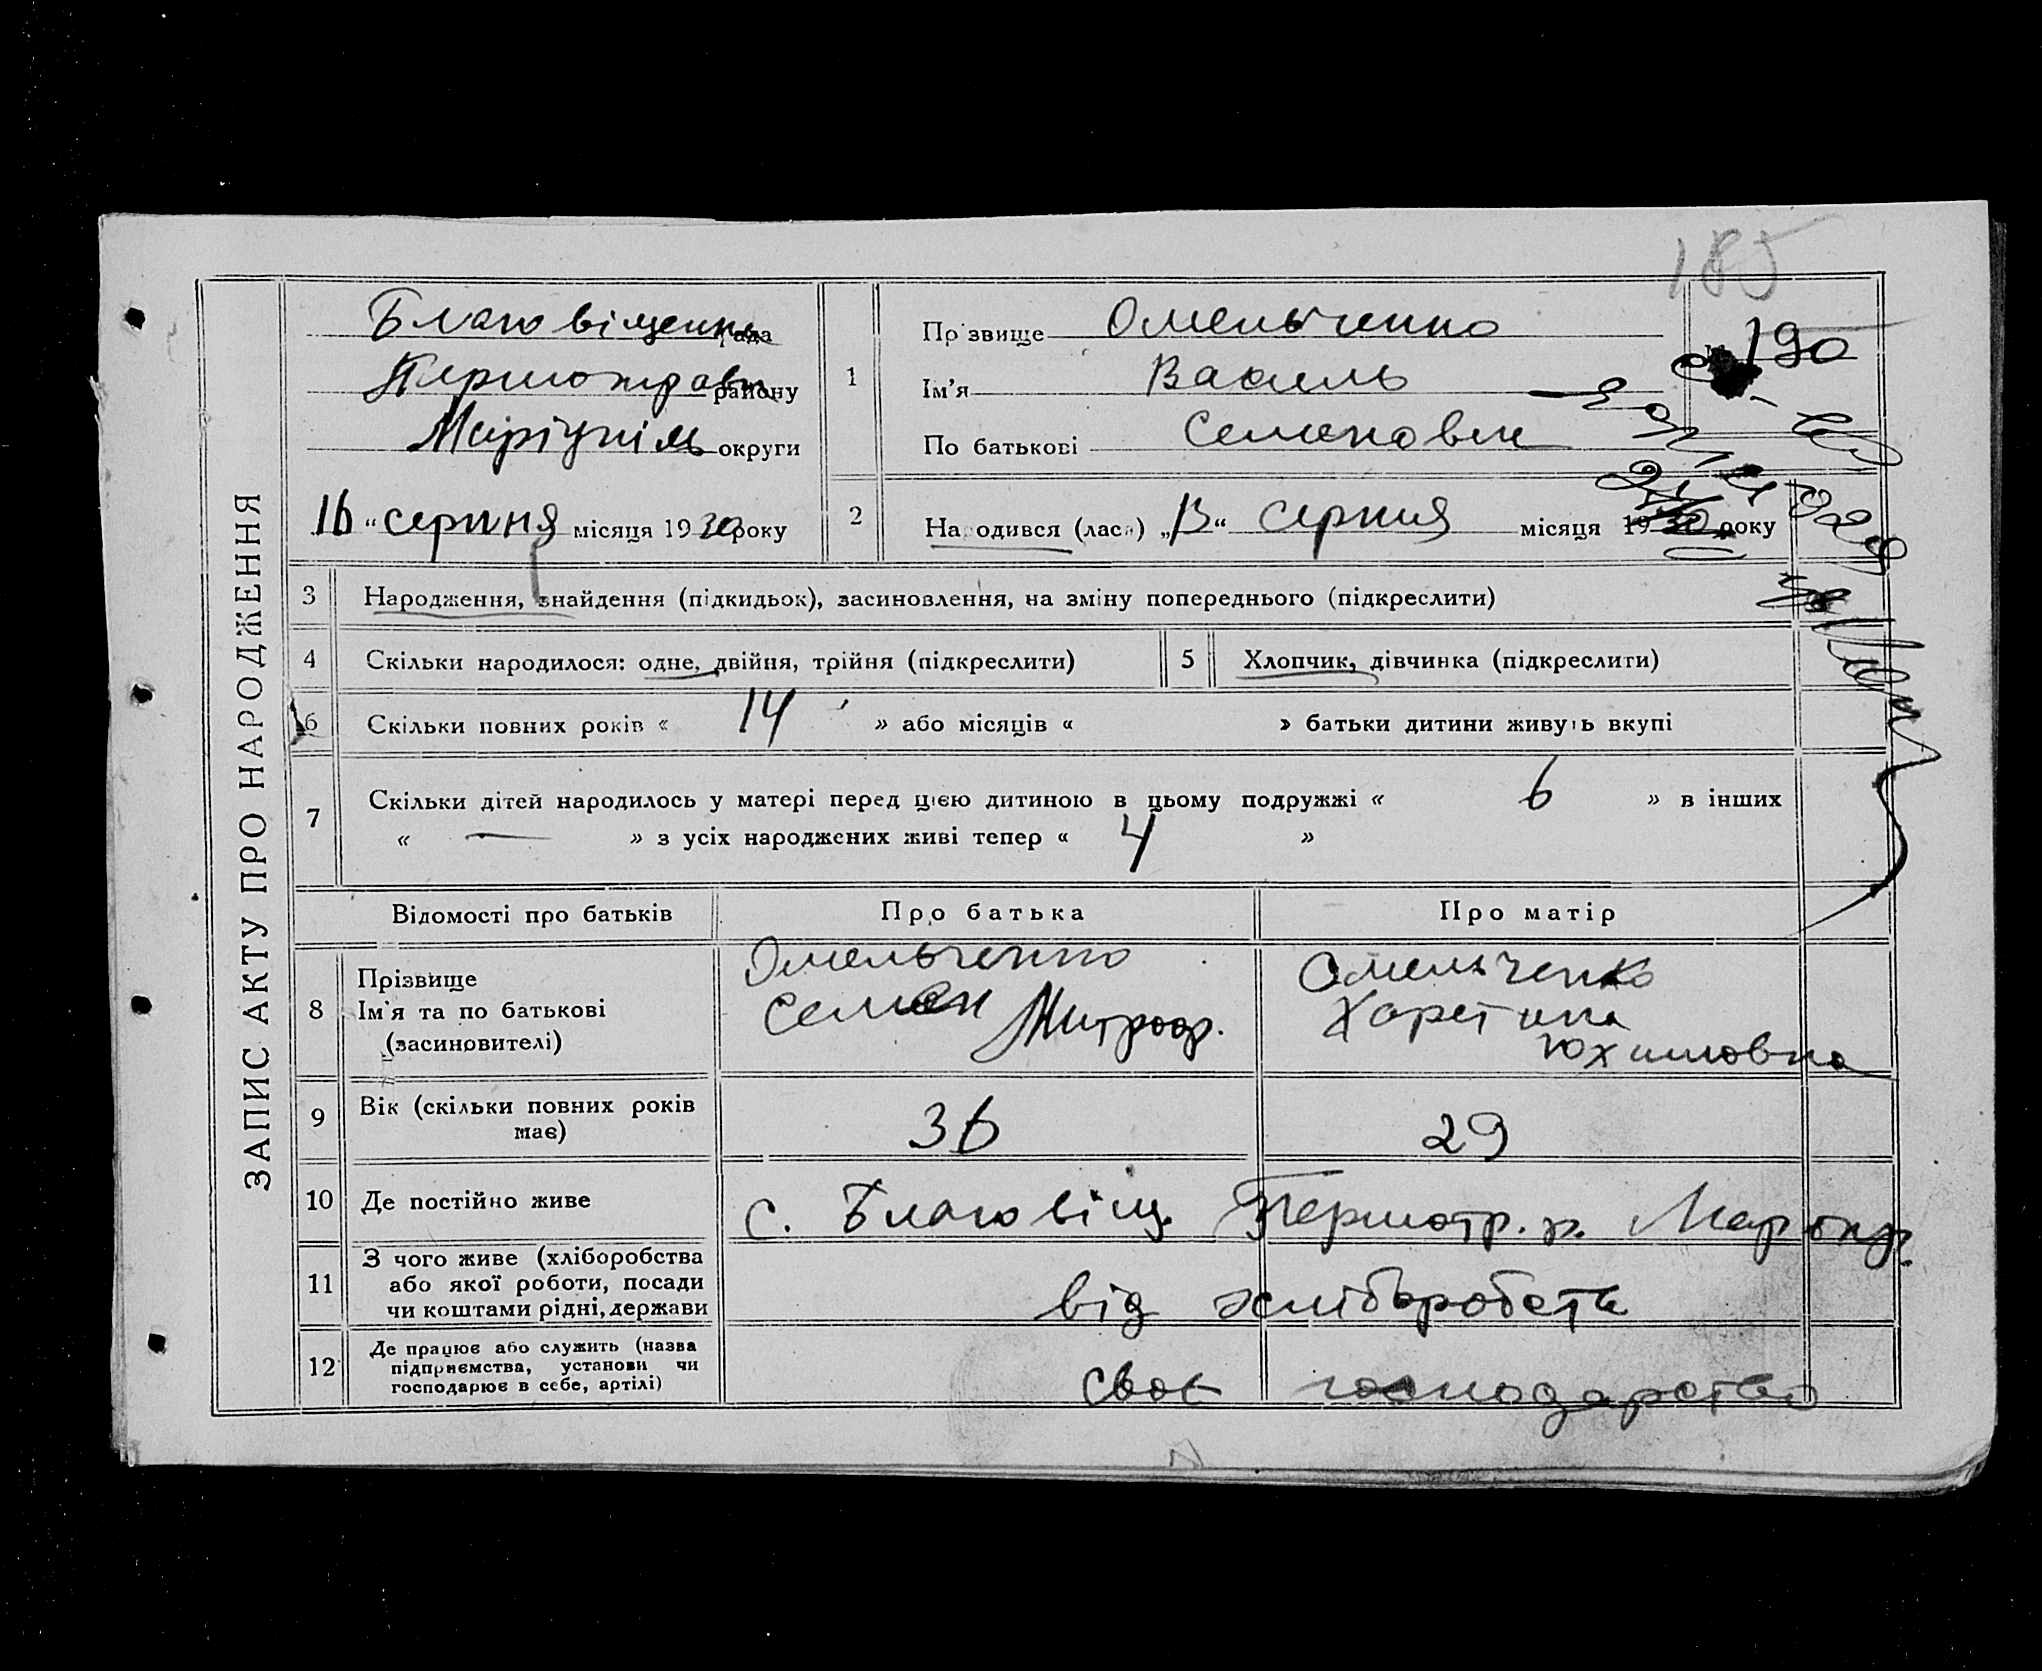 185
ЗАПИС АКТУ ПРО НАРОДЖЕННЯ
Благовіщенська рада
Першотравн району
Маріупіль округи
16 „ серпня місяця 1930 року
1
Прізвище Омельченко
Ім'я Василь
По батькові Семенович
190
2
Народився (лася) „13" серпня місяця 1930 року
3 Народження, знайдення (підкидьок), засиновлення, на зміну попереднього (підкреслити)
4 Скільки народилося: одне, двійня, трійня (підкреслити)
5 Хлопчик, дівчинка (підкреслити)
6 Скільки повних років « 14 » або місяців « » батьки дитини живуть вкупі
7 Скільки дітей народилось у матері перед цією дитиною в цьому подружжі « 6 » в інших
« — » з усіх народжених живі тепер « 4 »
Відомості про батьків Про батька Про матір
8 Прізвище
Ім'я та по батькові
(засиновителі)
Омельченко
Семен Митроф.
Омельченко
Харетина
Юхимовна
9 Вік (скільки повних років
має)
36 29
10 Де постійно живе с. Благовіщ Першотр. р. Маріюп
11 З чого живе (хліборобства
або якої роботи, посади
чи коштами рідні, держави
від хліборобств
12 Де працює або служить (назва
підприємства, установи чи
господарює в себе, артілі)
своє господарство